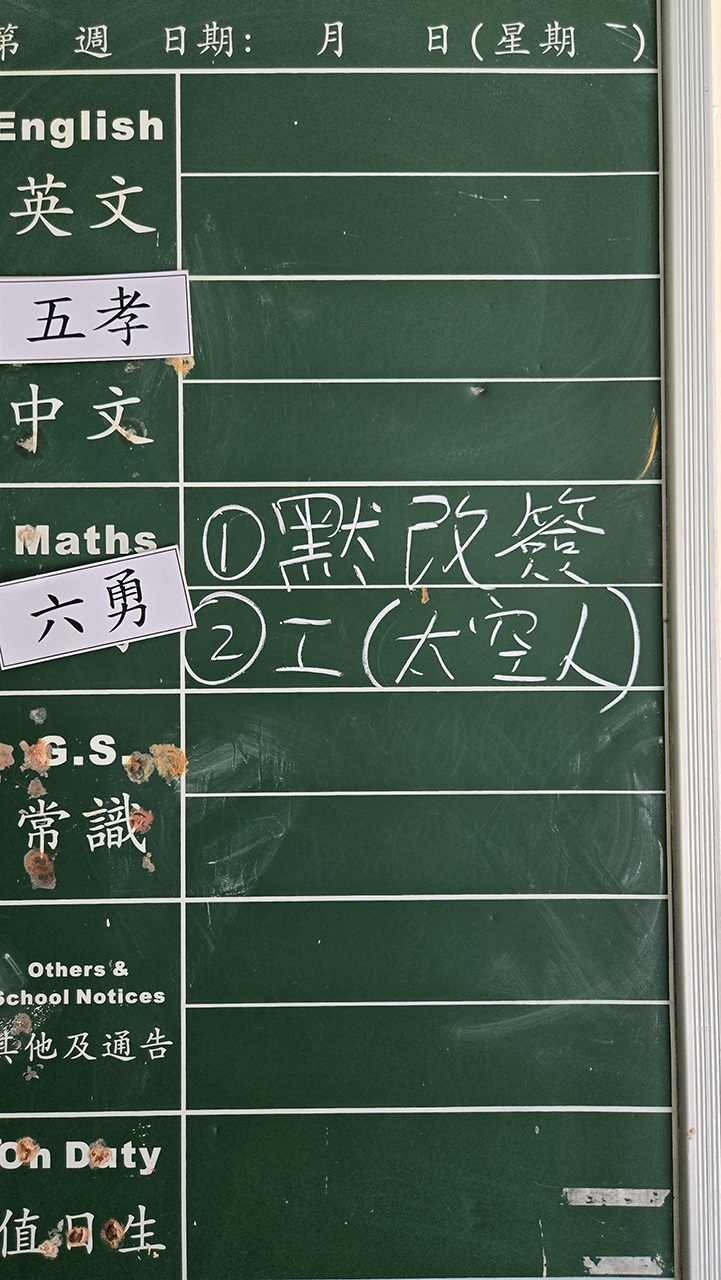 第 週 日期: 月 日(星期 )
English
英文
五孝
中文
Maths
①默改簽
六勇
②工(太空人)
G.S.
常識
Others &
School Notices
其他及通告
On Duty
值日生